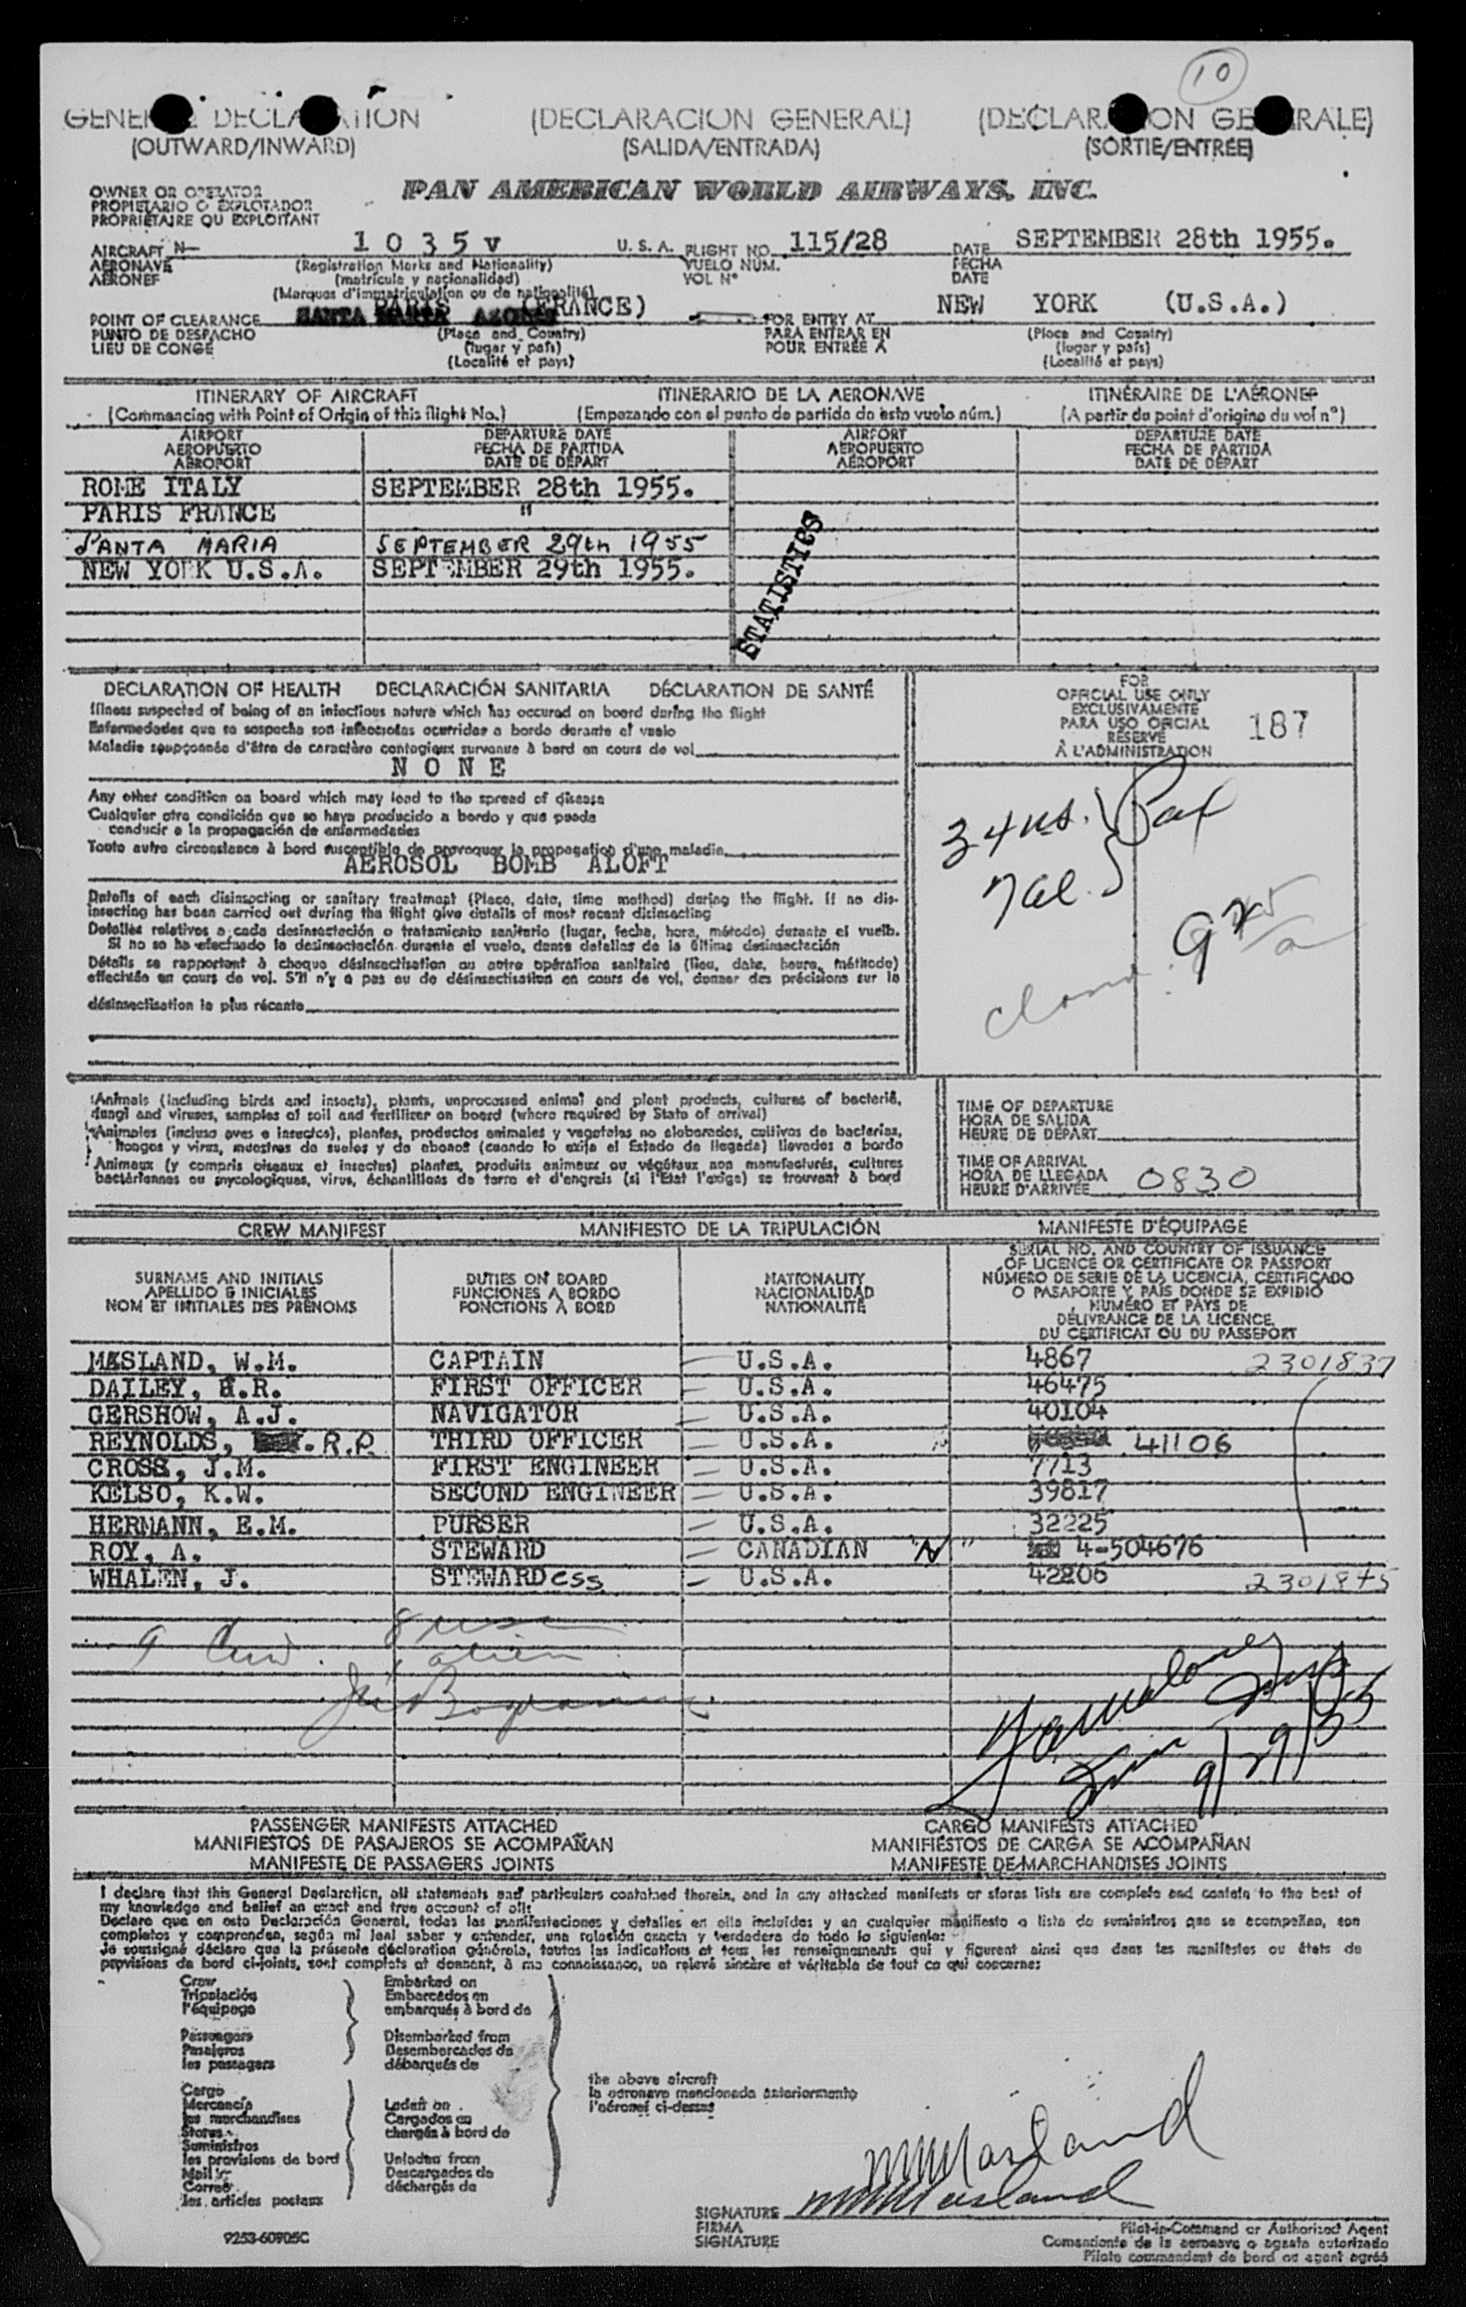 10
GENERAL DECLARATION (DECLARACION GENERAL) (DECLARATION GENERALE)
(OUTWARD/INWARD) (SALIDA/ENTRADA) (SORTIE/ENTRÉE)
OWNER OR OPERATOR
PROPIETARIO O EXPLOTADOR
PROPRIÉTAIRE OU EXPLOITANT
PAN AMERICAN WORLD AIRWAYS, INC.
AIRCRAFT N- 1 0 3 5 v U. S. A. FLIGHT NO. 115/28 DATE SEPTEMBER 28th 1955.
AERONAVE (Registration Marks and Nationality) VUELO NÚM. FECHA
AÉRONEF (matrícula y nacionalidad) VOL N° DATE
(Marques d'immatriculation ou de nationalité)
PARIS (FRANCE) NEW YORK (U.S.A.)
POINT OF CLEARANCE SANTA MARIA AZORES FOR ENTRY AT
PUNTO DE DESPACHO (Place and Country) PARA ENTRAR EN (Place and Country)
LIEU DE CONGÉ (lugar y país) POUR ENTRÉE A (lugar y país)
(Localité et pays) (Localité et pays)
ITINERARY OF AIRCRAFT ITINERARIO DE LA AERONAVE ITINÉRAIRE DE L'AÉRONEF
(Commencing with Point of Origin of this flight No.) (Empezando con el punto de partida de este vuelo núm.) (A partir du point d'origine du vol n°)
AIRPORT DEPARTURE DATE AIRPORT DEPARTURE DATE
AEROPUERTO FECHA DE PARTIDA AEROPUERTO FECHA DE PARTIDA
AÉROPORT DATE DE DÉPART AÉROPORT DATE DE DÉPART
ROME ITALY SEPTEMBER 28th 1955.
PARIS FRANCE "
SANTA MARIA SEPTEMBER 29th 1955
NEW YORK U.S.A. SEPTEMBER 29th 1955.
STATISTICS
DECLARATION OF HEALTH DECLARACIÓN SANITARIA DÉCLARATION DE SANTÉ
Illness suspected of being of an infectious nature which has occured on board during the flight
Enfermedades que se sospecha son infecciosas ocurridas a bordo durante el vuelo
Maladie soupçonnée d'être de caractère contagieux survenue à bord en cours de vol
N O N E
Any other condition on board which may lead to the spread of disease
Cualquier otra condición que se haya producido a bordo y que pueda
conducir a la propagación de enfermedades
Toute autre circonstance à bord susceptible de provoquer la propagation d'une maladie
AEROSOL BOMB ALOFT
Details of each disinsecting or sanitary treatment (Place, date, time method) during the flight. If no dis-
insecting has been carried out during the flight give details of most recent disinsecting
Detalles relativos a cada desinsectación o tratamiento sanitario (lugar, fecha, hora, método) durante el vuelo.
Si no se ha efectuado la desinsectación durante el vuelo, dense detalles de la última desinsectación
Détails se rapportant à chaque désinsectisation ou autre opération sanitaire (lieu, date, heure, méthode)
effectuée en cours de vol. S'il n'y a pas eu de désinsectisation en cours de vol, donner des précisions sur la
désinsectisation la plus récente
FOR
OFFICIAL USE ONLY
EXCLUSIVAMENTE
PARA USO OFICIAL
RÉSERVÉ
À L'ADMINISTRATION
187
34 us. } Pax
7 al.
Animals (including birds and insects), plants, unprocessed animal and plant products, cultures of bacteria,
fungi and viruses, samples of soil and fertilizer on board (where required by State of arrival)
Animales (incluso aves e insectos), plantas, productos animales y vegetales no elaborados, cultivos de bacterias,
hongos y virus, muestras de suelos y de abonos (cuando lo exija el Estado de llegada) llevados a bordo
Animaux (y compris oiseaux et insectes) plantes, produits animaux ou végétaux non manufacturés, cultures
bactériennes ou mycologiques, virus, échantillons de terre et d'engrais (si l'Etat l'exige) se trouvant à bord
TIME OF DEPARTURE
HORA DE SALIDA
HEURE DE DÉPART
TIME OF ARRIVAL
HORA DE LLEGADA
HEURE D'ARRIVÉE 0830
CREW MANIFEST MANIFIESTO DE LA TRIPULACIÓN MANIFESTE D'ÉQUIPAGE
SURNAME AND INITIALS
APELLIDO E INICIALES
NOM ET INITIALES DES PRÉNOMS
DUTIES ON BOARD
FUNCIONES A BORDO
FONCTIONS À BORD
NATIONALITY
NACIONALIDAD
NATIONALITÉ
SERIAL NO. AND COUNTRY OF ISSUANCE
OF LICENCE OR CERTIFICATE OR PASSPORT
NÚMERO DE SERIE DE LA LICENCIA, CERTIFICADO
O PASAPORTE Y PAÍS DONDE SE EXPIDIÓ
NUMÉRO ET PAYS DE
DÉLIVRANCE DE LA LICENCE,
DU CERTIFICAT OU DU PASSEPORT
MASLAND, W.M. CAPTAIN U.S.A. 4867 2301837
DAILEY, H.R. FIRST OFFICER U.S.A. 46475
GERSHOW, A.J. NAVIGATOR U.S.A. 40104
REYNOLDS, R.P. THIRD OFFICER U.S.A. 41106
CROSS, J.M. FIRST ENGINEER U.S.A. 7713
KELSO, K.W. SECOND ENGINEER U.S.A. 39817
HERMANN, E.M. PURSER U.S.A. 32225
ROY, A. STEWARD CANADIAN "N" 4-504676
WHALEN, J. STEWARDess U.S.A. 42206 2301845
9 Crew. 8 usc
1 alien
9/29/55
PASSENGER MANIFESTS ATTACHED CARGO MANIFESTS ATTACHED
MANIFIESTOS DE PASAJEROS SE ACOMPAÑAN MANIFIESTOS DE CARGA SE ACOMPAÑAN
MANIFESTE DE PASSAGERS JOINTS MANIFESTE DE MARCHANDISES JOINTS
I declare that this General Declaration, all statements and particulars contained therein, and in any attached manifests or stores lists are complete and contain to the best of
my knowledge and belief an exact and true account of all:
Declaro que en esta Declaración General, todas las manifestaciones y detalles en ella incluidos y en cualquier manifiesto o lista de suministros que se acompañan, son
completos y comprenden, según mi leal saber y entender, una relación exacta y verdadera de todo lo siguiente:
Je soussigné déclare que la présente déclaration générale, toutes les indications et tous les renseignements qui y figurent ainsi que dans les manifestes ou états de
provisions de bord ci-joints, sont complets et donnent, à ma connaissance, un relevé sincère et véritable de tout ce qui concerne:
Crew Embarked on
Tripulación Embarcados en
l'équipage embarqués à bord de
Passengers Disembarked from
Pasajeros Desembarcados de
les passagers débarqués de
the above aircraft
la aeronave mencionada anteriormente
l'aéronef ci-dessus
Cargo
Mercancía Laden on
les marchandises Cargados en
Stores chargés à bord de
Suministros
les provisions de bord Unladen from
Mail Descargados de
Correo déchargés de
les articles postaux
WMMasland
SIGNATURE WMMasland
FIRMA
SIGNATURE
Pilot-in-Command or Authorized Agent
Comandante de la aeronave o agente autorizado
Pilote commandant de bord ou agent agréé
9253-60905C